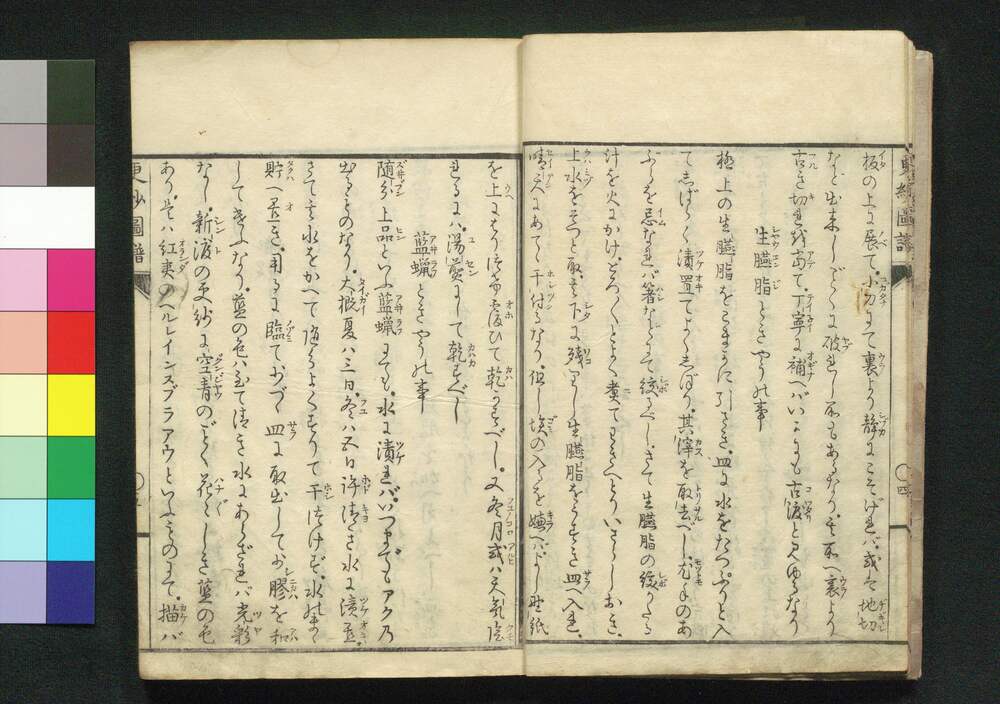 更紗圖譜
板の上に展て。小刀にて裏より静にこそげれバ。或ハ地切
など出来しごとくに破れし所もあるなり。其所へ裏より
古き切れを當て。丁寧に補へバ。いかにも古渡と見ゆるなり
生臙脂ときやうの事
極上の生臙脂をこまかに引さき。皿に水をたつぷりと入
てしばらく漬置てよくしぼり。其滓を取去べし。尤手のあ
ぶらを忌なれバ箸などにて絞べし。さて生臙脂の絞たる
汁を火にかけ。とろ〱とよく煮てわきへとりいさましおき。
上水をそつと取。其下に残りし生臙脂をうすき皿へ入れ。
晴天にあてゝ干付るなり。但し埃の入るを嫌へバ。よしの紙
を上にはり
覆ひて乾かすべし。又冬月或ハ天気陰
れるにハ。湯煎にして乾すべし
藍蝋ときやうの事
随分上品といふ藍蝋にても。水に漬れバいつまでもアク乃
出るものなり。大概夏ハ三日。冬ハ五日許清き水に漬置。
さて其水をかへて随分よくすりて干つけ
水のまゝ
貯へ置き。用るに臨て少づゝ皿に取出して少膠を和
してぬるなり。藍の色ハ至て清き水にあらざれバ光彩
なし。新渡の更紗に空青のごとく花々しき藍の色
あり。是ハ紅夷のベルレインスブラアウといふものにて。描バ
更紗圖譜